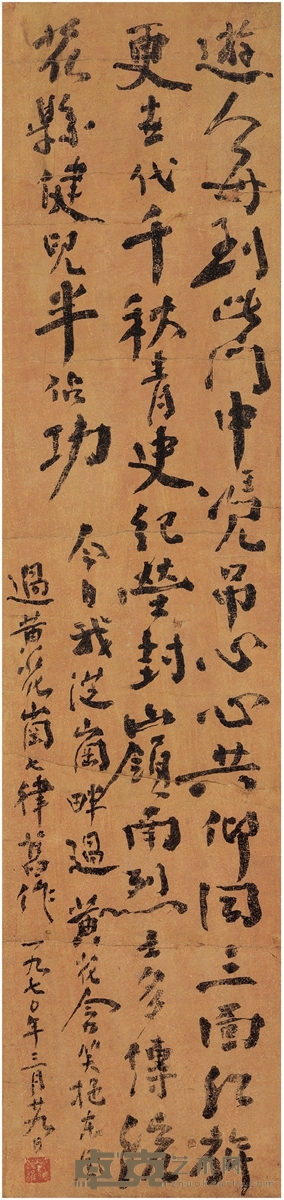 遊人每到此門中凭吊心心共仰同三面紅旗
更代千秋青史紀塋封嶺南烈士多傳績
花縣健兒半佔功
今日我從崗畔過黃花含笑挹東
過黃花崗七律舊作 一九七〇年三月廿九日
卓克艺术网